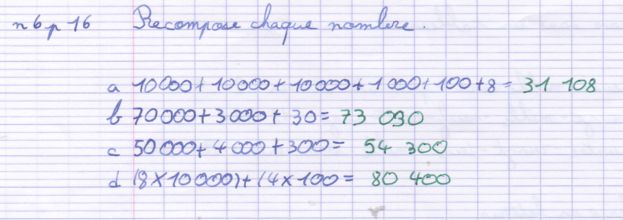 n 6 p 16 Recompose chaque nombre.
a 10000 + 10000 + 10000 + 1000 + 100 + 8 = 31 108
b 70000 + 3000 + 30 = 73 030
c 50000 + 4000 + 300 = 54 300
d (8 × 10000) + (4 × 100 = 80 400